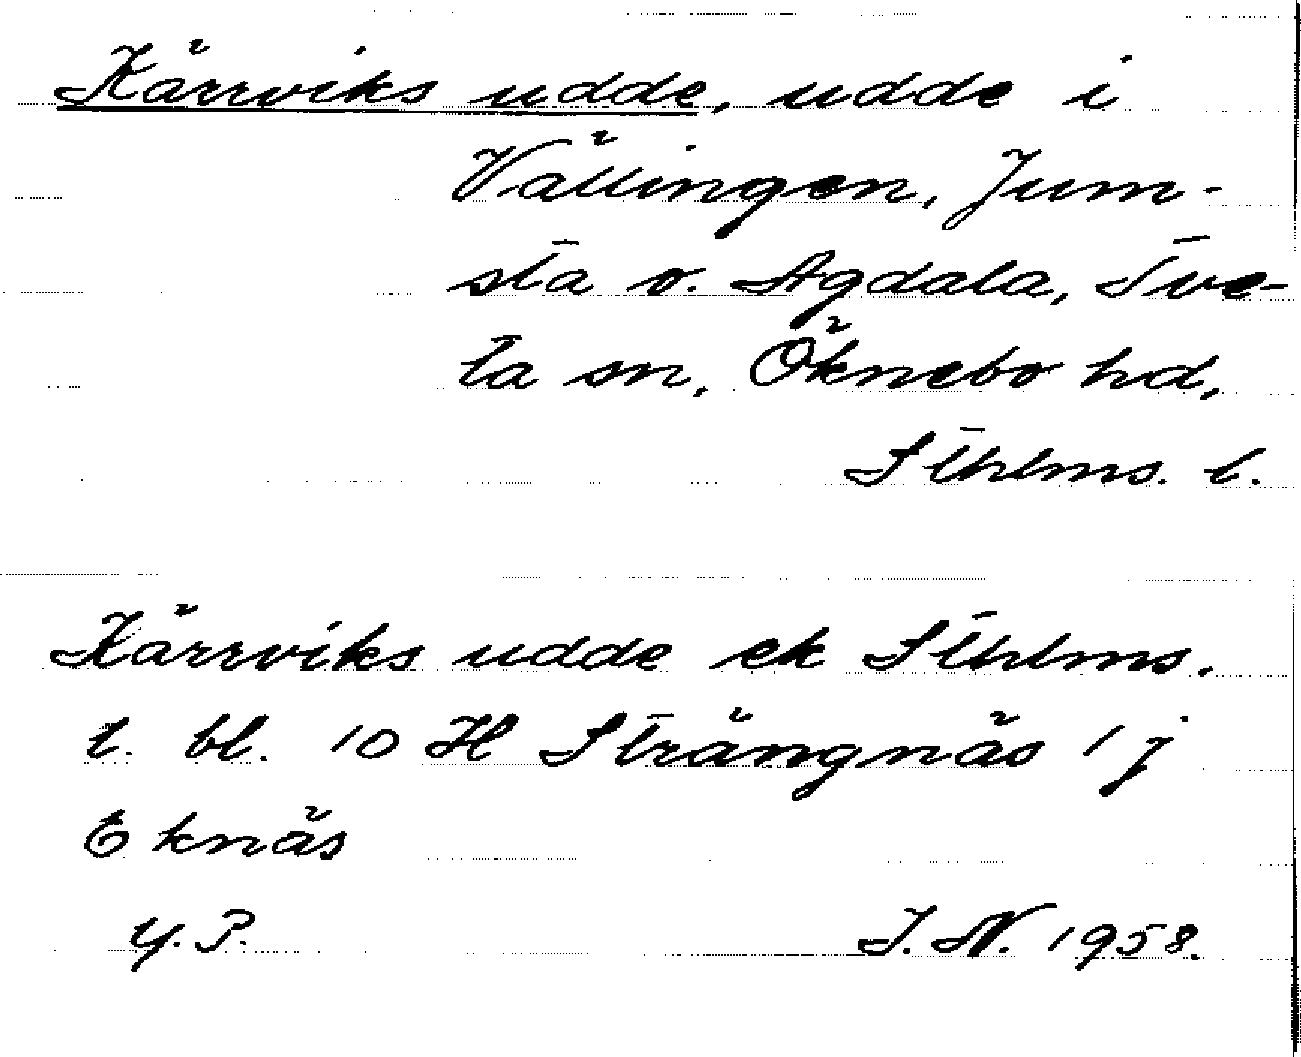 Kärrviks udde, udde i
Vällingen, Jum-
sta o. Agdala, Sve-
ta sn, Öknebo hd,
Sthlms. l.
Kärrviks udde ek Sthlms.
l. bl. 10 H Strängnäs 1 j
Eknäs
Y. P. I. N. 1958.